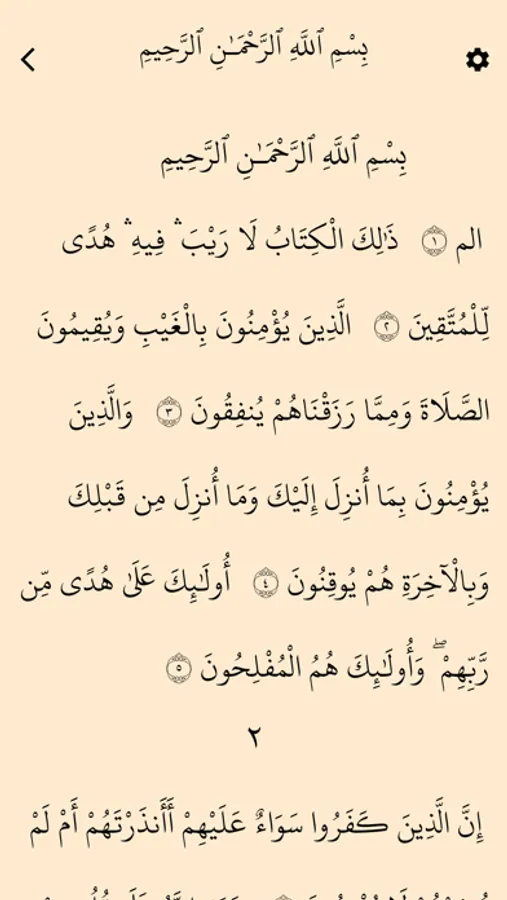 بِسْمِ ٱللَّهِ ٱلرَّحْمَـٰنِ ٱلرَّحِيمِ
بِسْمِ ٱللَّهِ ٱلرَّحْمَـٰنِ ٱلرَّحِيمِ
الم ۝١ ذَٰلِكَ الْكِتَابُ لَا رَيْبَ ۛ فِيهِ ۛ هُدًى
لِّلْمُتَّقِينَ ۝٢ الَّذِينَ يُؤْمِنُونَ بِالْغَيْبِ وَيُقِيمُونَ
الصَّلَاةَ وَمِمَّا رَزَقْنَاهُمْ يُنفِقُونَ ۝٣ وَالَّذِينَ
يُؤْمِنُونَ بِمَا أُنزِلَ إِلَيْكَ وَمَا أُنزِلَ مِن قَبْلِكَ
وَبِالْآخِرَةِ هُمْ يُوقِنُونَ ۝٤ أُولَـٰئِكَ عَلَىٰ هُدًى مِّن
رَّبِّهِمْ ۖ وَأُولَـٰئِكَ هُمُ الْمُفْلِحُونَ ۝٥
٢
إِنَّ الَّذِينَ كَفَرُوا سَوَاءٌ عَلَيْهِمْ أَأَنذَرْتَهُمْ أَمْ لَمْ